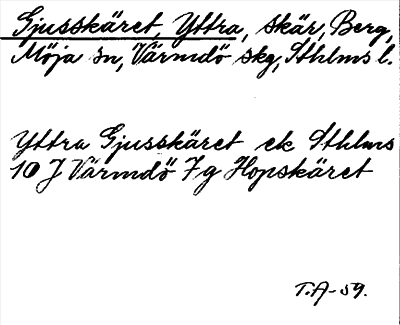 Gjusskäret, Yttra, skär, Berg,
Möja sn, Värmdö skg, Sthlms l.
Yttra Gjusskäret ek Sthlms
10 J Värmdö 7g Hopskäret
T.A-59.